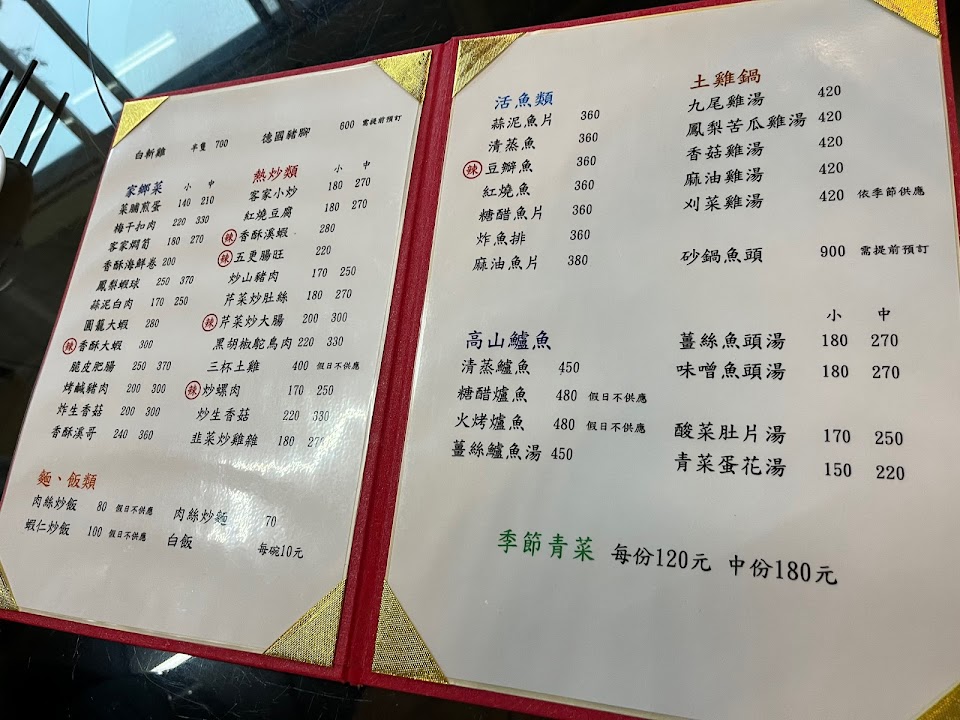 白斬雞 半隻 700 德國豬腳 600 需提前預訂
家鄉菜 小 中
菜脯煎蛋 140 210
梅干扣肉 220 330
客家燜筍 180 270
香酥海鮮卷 200
鳳梨蝦球 250 370
蒜泥白肉 170 250
圓籠大蝦 280
辣 香酥大蝦 300
脆皮肥腸 250 370
烤鹹豬肉 200 300
炸生香菇 200 300
香酥溪哥 240 360
熱炒類 小 中
客家小炒 180 270
紅燒豆腐 180 270
辣 香酥溪蝦 280
辣 五更腸旺 220
炒山豬肉 170 250
芹菜炒肚絲 180 270
辣 芹菜炒大腸 200 300
黑胡椒鴕鳥肉 220 330
三杯土雞 400 假日不供應
辣 炒螺肉 170 250
炒生香菇 220 330
韭菜炒雞雜 180 270
麵、飯類
肉絲炒飯 80 假日不供應 肉絲炒麵 70
蝦仁炒飯 100 假日不供應 白飯 每碗10元
活魚類
蒜泥魚片 360
清蒸魚 360
辣 豆瓣魚 360
紅燒魚 360
糖醋魚片 360
炸魚排 360
麻油魚片 380
土雞鍋
九尾雞湯 420
鳳梨苦瓜雞湯 420
香菇雞湯 420
麻油雞湯 420
刈菜雞湯 420 依季節供應
砂鍋魚頭 900 需提前預訂
高山鱸魚
清蒸鱸魚 450
糖醋鱸魚 480 假日不供應
火烤鱸魚 480 假日不供應
薑絲鱸魚湯 450
小 中
薑絲魚頭湯 180 270
味噌魚頭湯 180 270
酸菜肚片湯 170 250
青菜蛋花湯 150 220
季節青菜 每份120元 中份180元